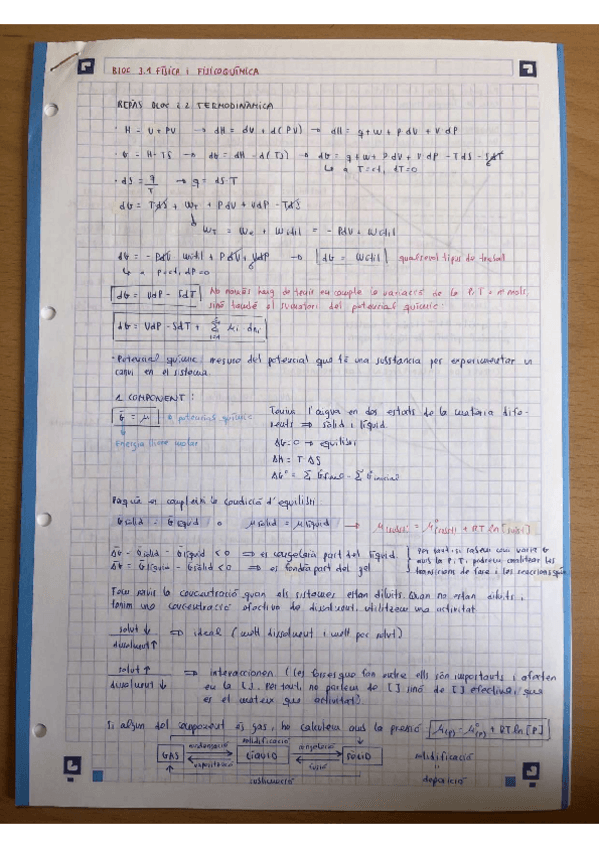 BLOC 3.1 FÍSICA I FISICOQUÍMICA
REPÀS BLOC 2.2 TERMODINÀMICA
· H = U + PV → dH = dU + d(PV) → dH = q + w + PdV + VdP
· G = H - TS → dG = dH - d(TS) → dG = q + w + PdV + VdP - TdS - SdT
↳ a T = ct, dT = 0
· dS = q/T → q = dS·T
dG = TdS + wT + PdV + VdP - TdS
wT = we + wútil = - PdV + wútil
dG = - PdV + wútil + PdV + VdP → dG = wútil qualsevol tipus de treball
↳ a P = ct, dP = 0
dG = VdP - SdT
No només haig de tenir en compte la variació de la P i T = nº mols,
sinó també el sumatori del potencial químic:
dG = VdP - SdT + Σ μi dni
· Potencial químic: mesura del potencial que té una substància per experimentar un
canvi en el sistema
1 COMPONENT:
G = μ → potencial químic
Energia lliure molar
Tenim l'aigua en dos estats de la matèria dife-
rents ⇒ sòlid i líquid.
ΔG = 0 → equilibri
ΔH = T ΔS
ΔG° = Σ G final - Σ G inicial
Perquè es compleixi la condició d'equilibri:
G sòlid = G líquid o μ sòlid = μ líquid →
ΔG = G sòlid - G líquid < 0 ⇒ es congelarà part del líquid
ΔG = G líquid - G sòlid < 0 ⇒ es fondrà part del gel
Per tant, si sabem com varia G
amb la P i T, podrem analitzar les
transicions de fase i les reaccions
Fem servir la concentració quan els sistemes estan diluïts. Quan no estan diluïts,
tenim una concentració efectiva de dissolvent, utilitzem una activitat.
solut ↓
dissolvent ↑ ⇒ ideal (molt dissolvent i molt poc solut)
solut ↑
dissolvent ↓ ⇒ interaccionen. (Les forces que fan entre ells són importants i afecten
en la []. Per tant, no parlem de [] sinó de [] efectiva, que
és el mateix que activitat).
Si algun del component és gas, ho calculem amb la pressió μ(P) = μ°(P) + RT ln [P]
solidificació
GAS condensació LÍQUID congelació SÒLID
vaporització fusió
sublimació
solidificació
=
deposició